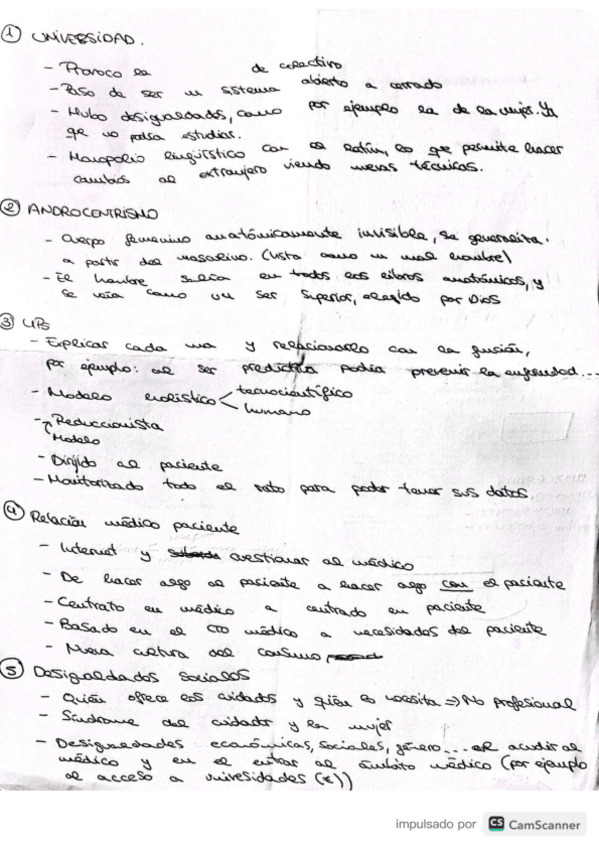 1 UNIVERSIDAD.
- Provoco la de colectivo
- Paso de ser un sistema abierto a cerrado
- Hubo desigualdades, como por ejemplo la de la mujer. Ya
qe no podía estudiar.
- Monopolio lingüístico con el latín, lo qe permite hacer
cambios al extranjero viendo nuevas técnicas.
2 ANDROCENTRISMO
- Cuerpo femenino anatómicamente invisible, se generaliza.
a partir del masculino. (Visto como un mal hombre)
- El hombre salía en todos los libros anatómicos, y
se veía como un ser superior, elegido por Dios
3 4Ps
- Explicar cada una y relacionarlo con la fusión,
por ejemplo: al ser predictiva podía prevenir la enfermedad...
- Modelo holístico < tecnocientífico
humano
- Reduccionista
Modelo
- Dirijido al paciente
- Monitorizado todo el rato para poder tener sus datos.
4 Relación médico paciente
- Internet y cuestionar al médico
- De hacer algo al paciente a hacer algo con el paciente
- Centrato en médico a centrado en paciente
- Basado en el cto médico a necesidades del paciente
- Nueva cultura del consumo
5 Desigualdades sociales
- Quién ofrece los cuidados y quién lo necesita => No profesional
- Síndrome del cuidador y la mujer
- Desigualdades económicas, sociales, género... al acudir al
médico y en el entrar al ámbito médico (por ejemplo
el acceso a universidades (*))
impulsado por CS CamScanner